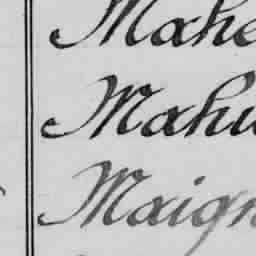 Mahe
Mahu
Maign